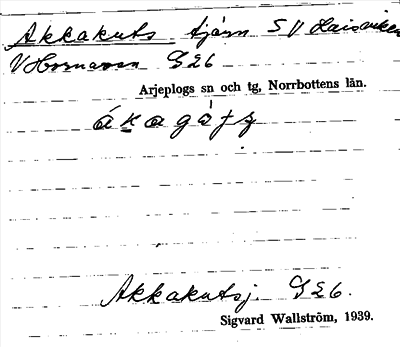 Akkakuts tjärn SV Haisviken
V Hornavan G26
Arjeplogs sn och tg, Norrbottens län.
Akkakutsj. G26.
Sigvard Wallström, 1939.